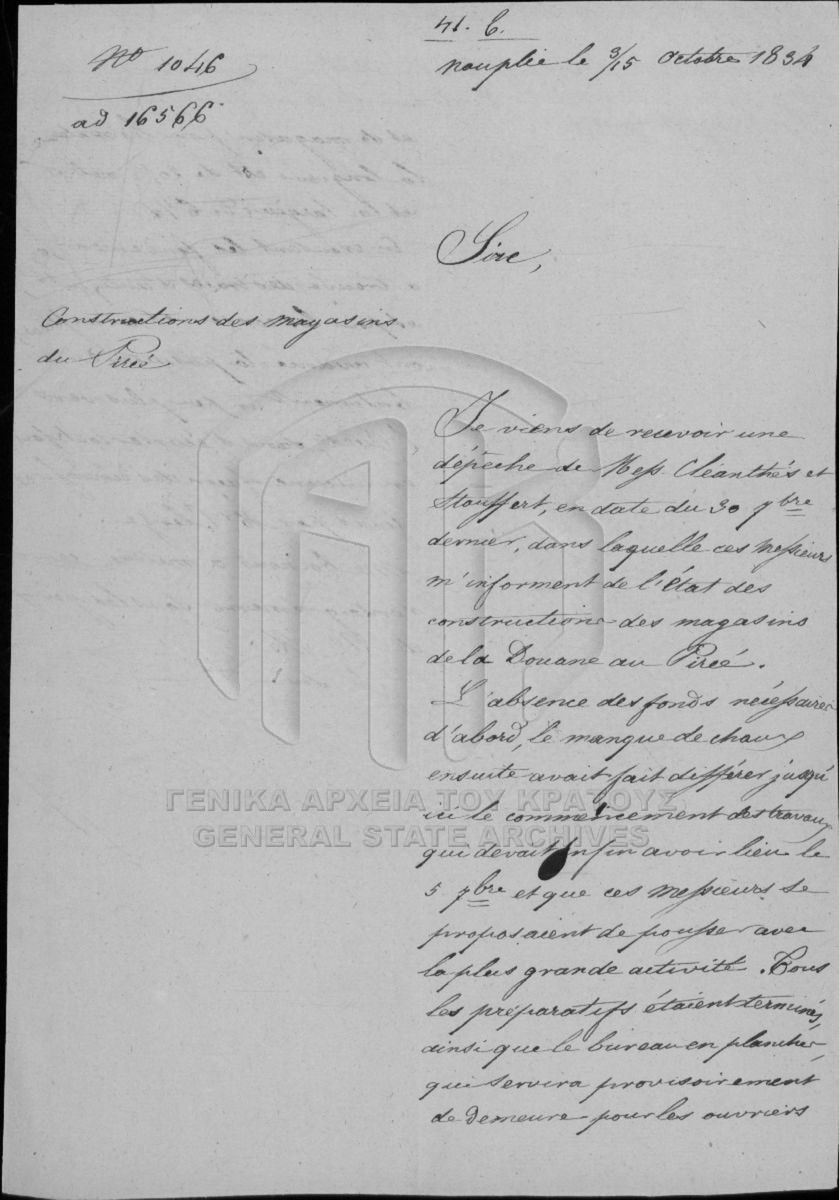 41. C.
Nauplie le 3/15 Octobre 1834
No 1046
ad 16566
Sire,
Constructions des magasins
du Pirée
Je viens de recevoir une
dépèche de Mess. Cléanthés et
Stauffert, en date du 30 7bre
dernier, dans laquelle ces messieurs
m'informent de l'état des
constructions des magasins
de la Douane au Pirée.
L'absence des fonds nécessaires
d'abord, le manque de chaux
ensuite avait fait différer jusqu'
ici le commencement des travaux
qui devait enfin avoir lieu le
5 7bre et que ces messieurs se
proposaient de pousser avec
la plus grande activité. Tous
les préparatifs étaient terminés,
ainsi que le bureau en plancher,
qui servira provisoirement
de demeure pour les ouvriers
ΓΕΝΙΚΑ ΑΡΧΕΙΑ ΤΟΥ ΚΡΑΤΟΥΣ
GENERAL STATE ARCHIVES